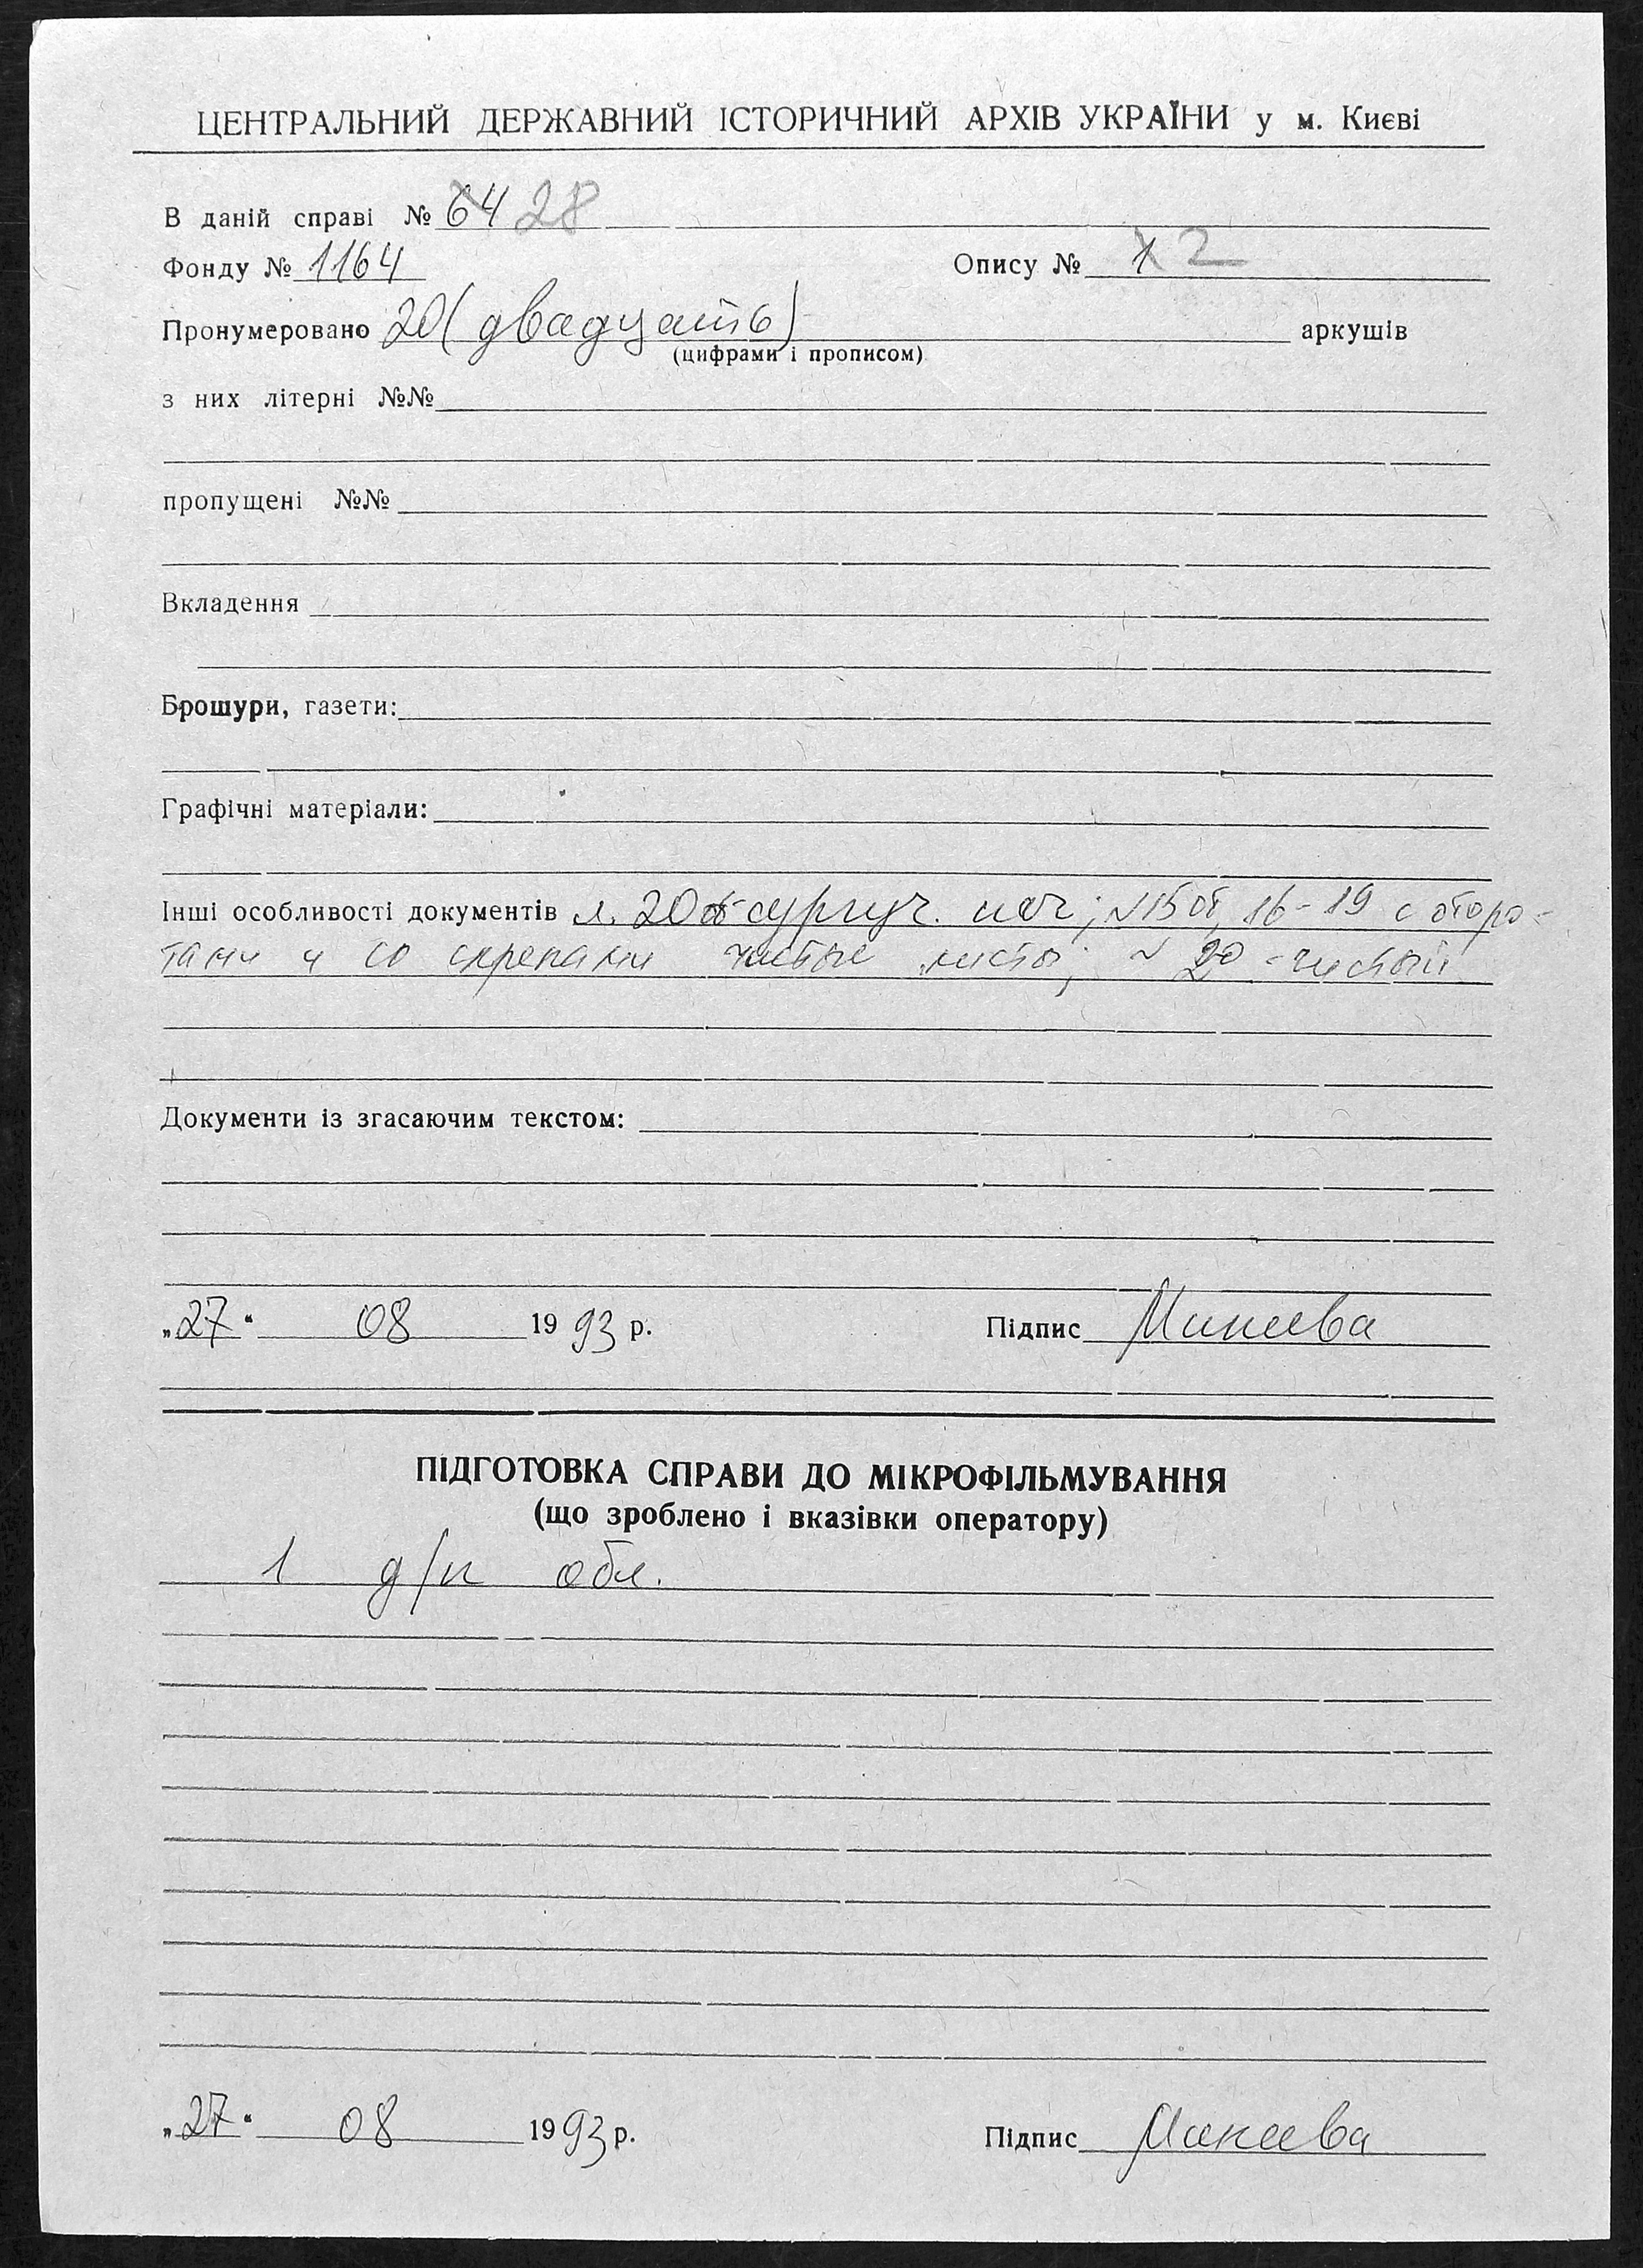 ЦЕНТРАЛЬНИЙ ДЕРЖАВНИЙ ІСТОРИЧНИЙ АРХІВ УКРАЇНИ у м. Києві
В даній справі № 64 28
Фонду № 1164 Опису № 1 2
Пронумеровано 20 (двадцать) аркушів
(цифрами і прописом)
з них літерні №№
пропущені №№
Вкладення
Брошури, газети:
Графічні матеріали:
Інші особливості документів л. 20об сургуч. печ; л 15 об, 16-19 с оборо-
тами и со скрепами чистые листы; л 20 - чистый
Документи із згасаючим текстом:
„27“ 08 1993 р. Підпис
ПІДГОТОВКА СПРАВИ ДО МІКРОФІЛЬМУВАННЯ
(що зроблено і вказівки оператору)
1 д/к обл.
„27“ 08 1993 р. Підпис